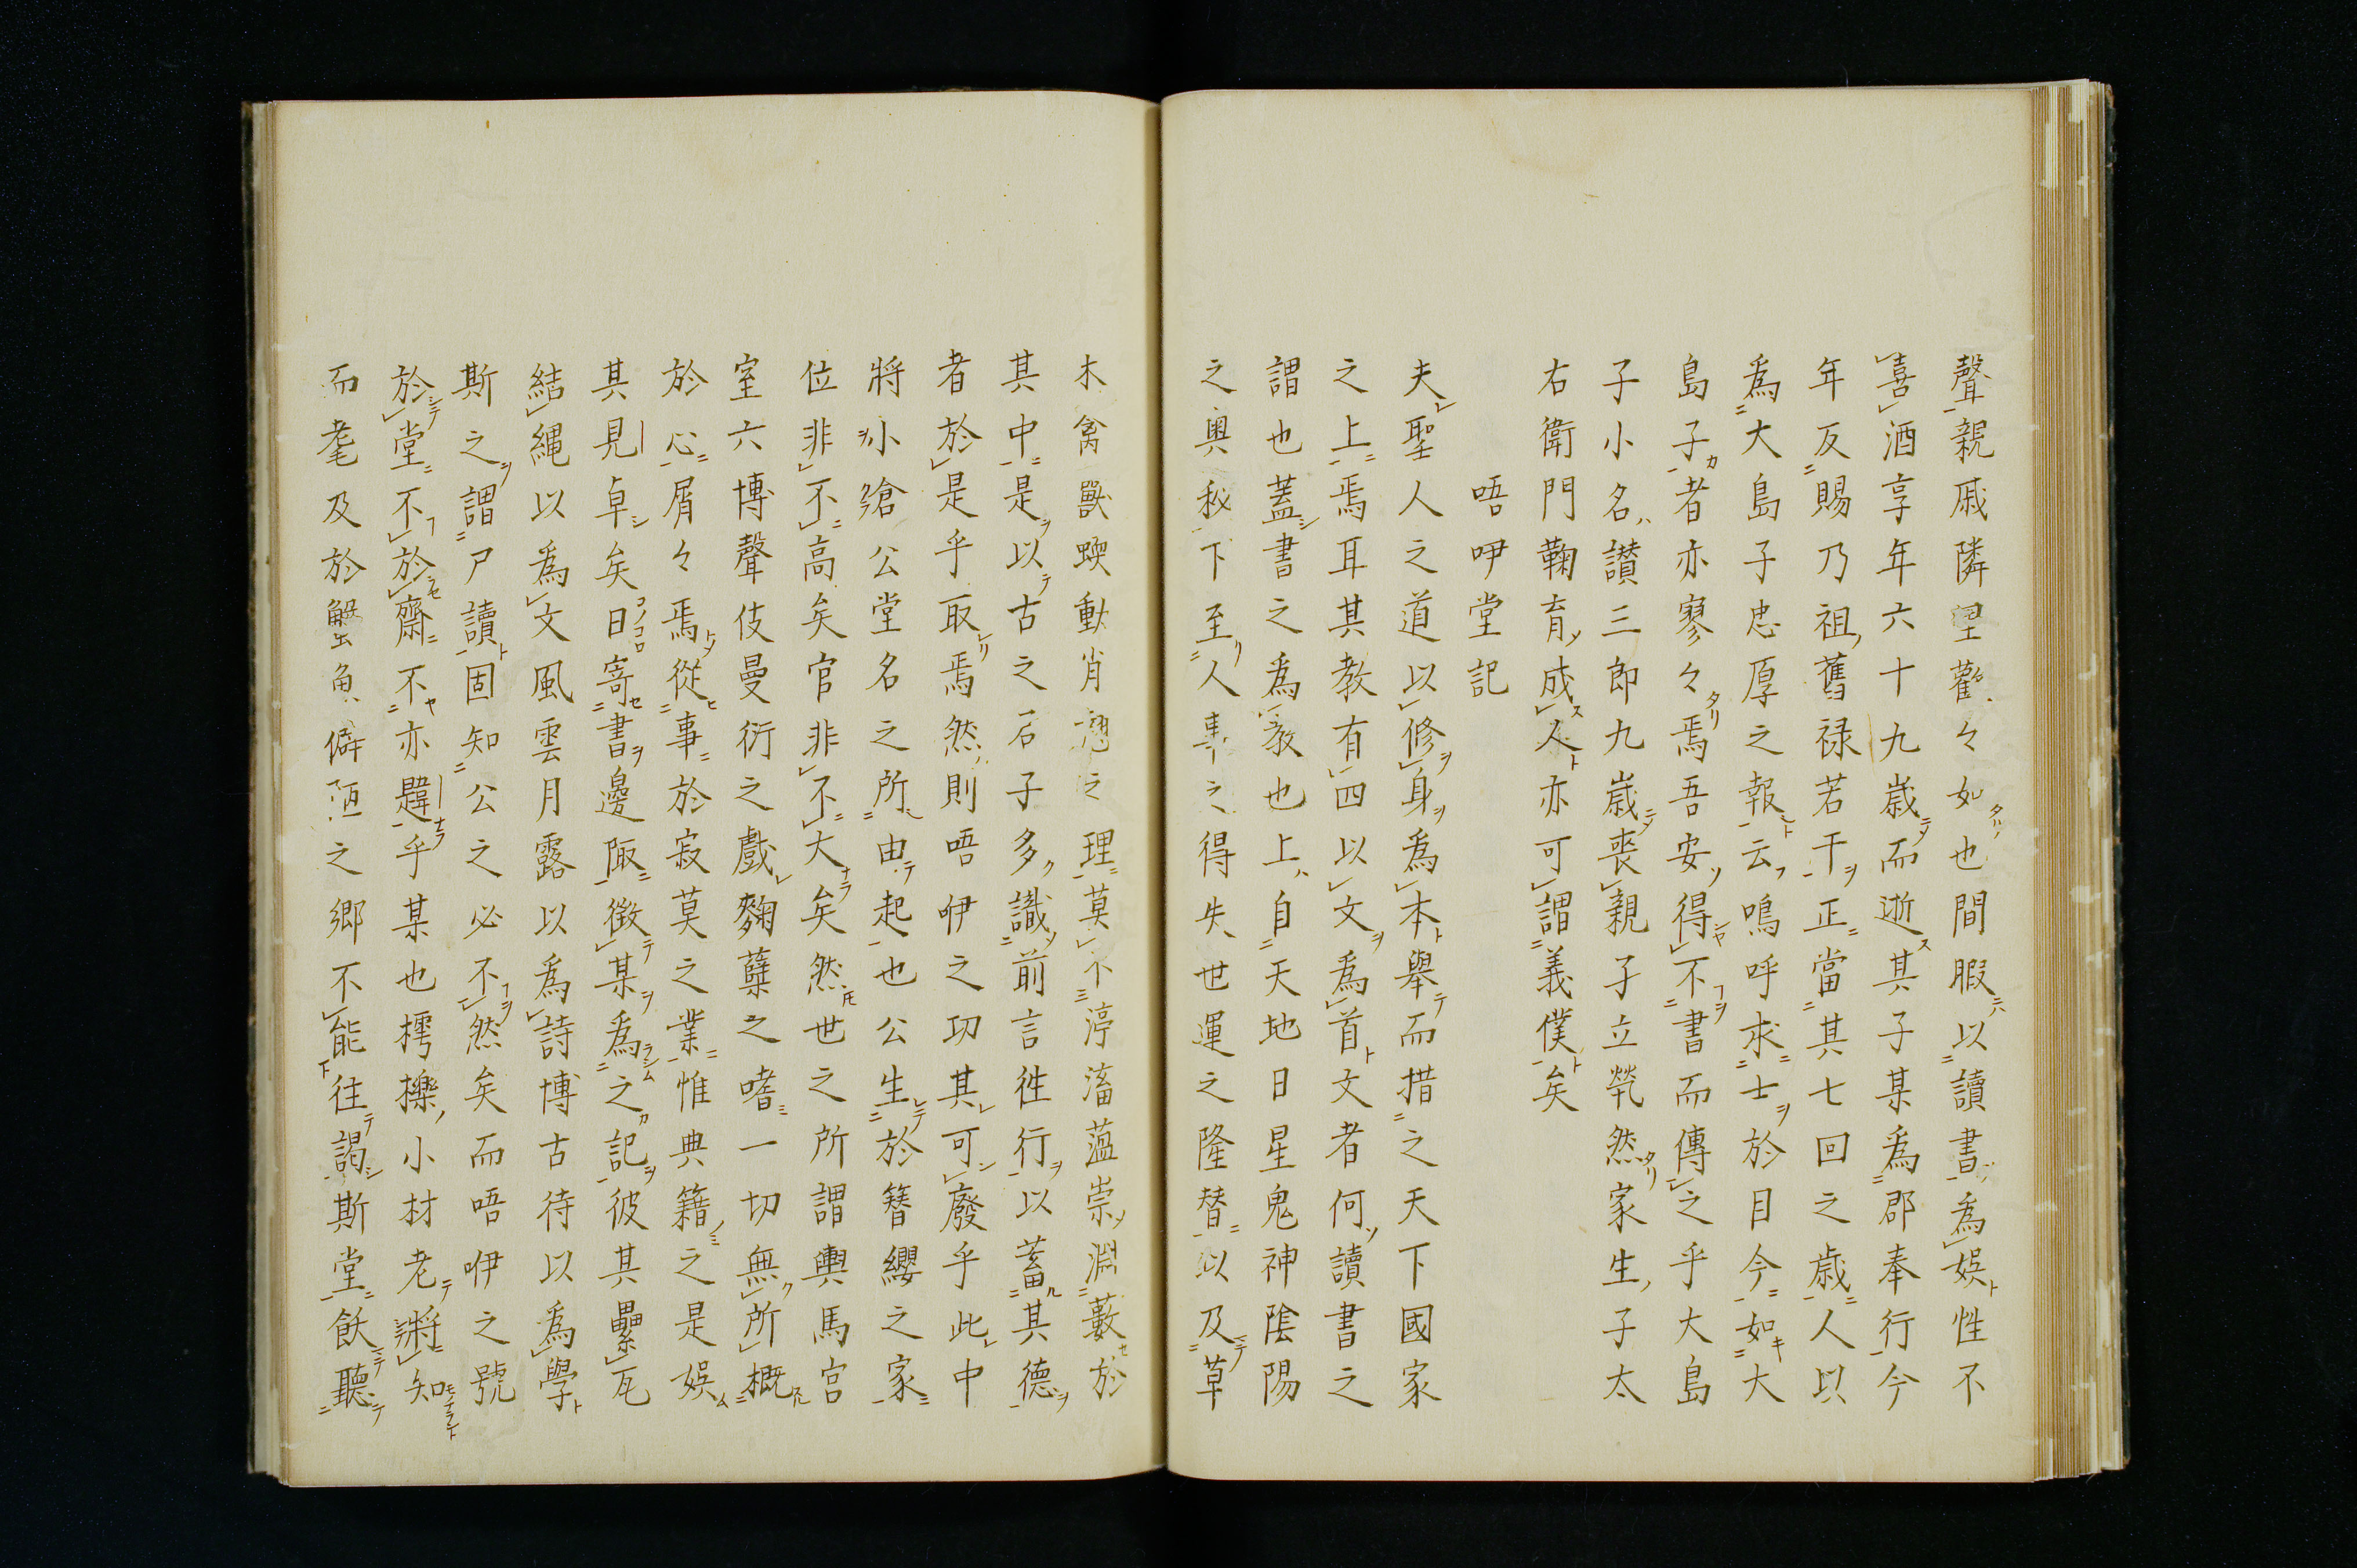 聲親戚隣里歡々如也間暇以讀書為娯性不
喜酒享年六十九歳而逝其子某為郡奉行今
年反賜乃祖舊禄若干正當其七回之歳人以
為大島子忠厚之報云嗚呼求士於目今如大
島子者亦寥々焉吾安得不書而傳之乎大島
子小名讃三郎九歳喪親孑立煢然家生子太
右衛門鞠育成人亦可謂義僕矣
唔咿堂記
夫聖人之道以修身為本舉而措之天下國家
之上焉耳其教有四以文為首文者何讀書之
謂也蓋書之為教也上自天地日星鬼神陰陽
之奥秘下至人事之得失世運之隆替以及草
木禽獸蝡動肖翹之理莫不渟滀薀崇淵藪於
其中是以古之君子多識前言徃行以蓄其德
者於是乎取焉然則唔咿之功其可廢乎此中
將小滄公堂名之所由起也公生於簪纓之家
位非不高矣官非不大矣然世之所謂輿馬宮
室六博聲伎曼衍之戲麴蘗之嗜一切無所概
於心屑々焉從事於寂莫之業惟典籍之是娯
其見卓矣日寄書邊陬徴某為之記彼其壘瓦
結繩以為文風雲月露以為詩博古待以為學
斯之謂尸讀固知公之必不然矣而唔咿之號
於堂不於齋不亦韙乎某也樗櫟小材老將知
而耄及於蟹魚僻陋之郷不能往謁斯堂飫聽